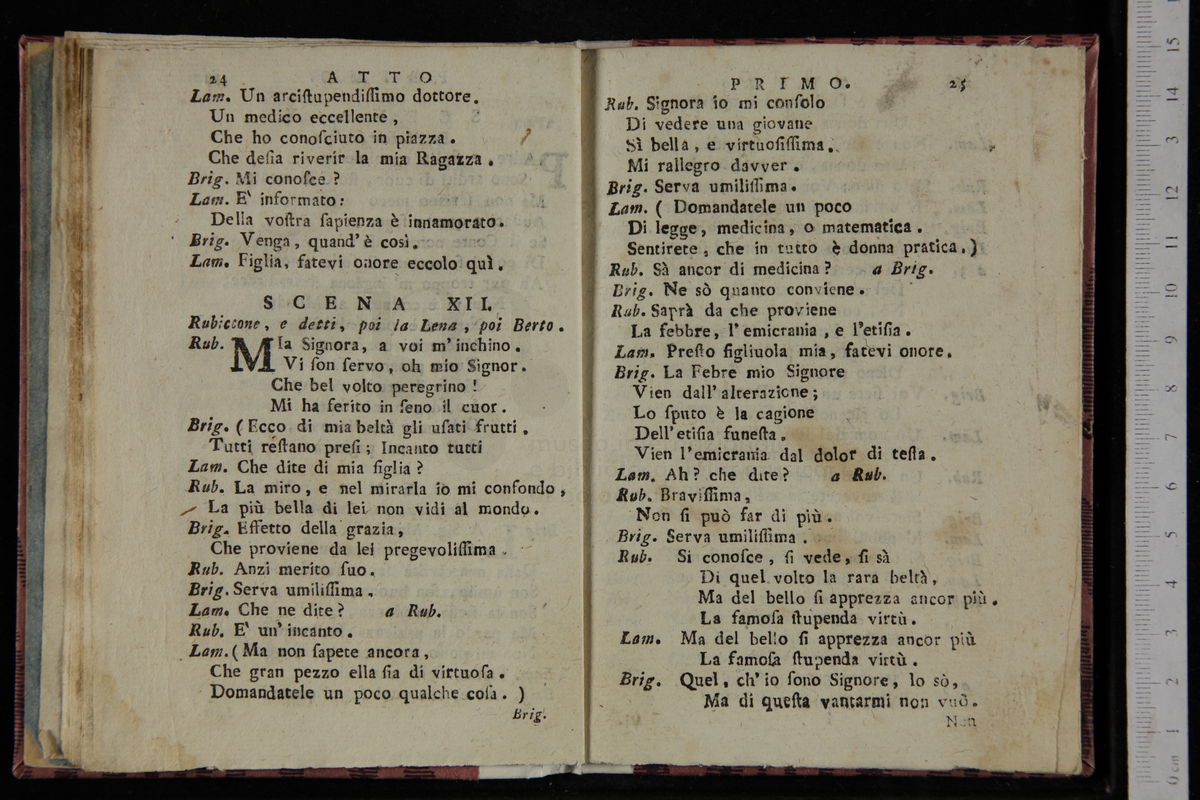 24 ATTO
Lam. Un arciſtupendiſſimo dottore.
Un medico eccellente,
Che ho conoſciuto in piazza.
Che deſia riverir la mia Ragazza.
Brig. Mi conoſce?
Lam. E' informato:
Della voſtra ſapienza è innamorato.
Brig. Venga, quand' è così.
Lam. Figlia, fatevi onore eccolo quì.
SCENA XII.
Rubiccone, e detti, poi la Lena, poi Berto.
Rub. MIa Signora, a voi m' inchino.
Vi ſon ſervo, oh mio Signor.
Che bel volto peregrino!
Mi ha ferito in ſeno il cuor.
Brig. (Ecco di mia beltà gli uſati frutti.
Tutti reſtano preſi; Incanto tutti
Lam. Che dite di mia figlia?
Rub. La miro, e nel mirarla io mi confondo,
La più bella di lei non vidi al mondo.
Brig. Effetto della grazia,
Che proviene da lei pregevoliſſima.
Rub. Anzi merito ſuo.
Brig. Serva umiliſſima.
Lam. Che ne dite? a Rub.
Rub. E' un' incanto.
Lam. (Ma non ſapete ancora,
Che gran pezzo ella ſia di virtuoſa.
Domandatele un poco qualche coſa.)
Brig.
PRIMO. 25
Rub. Signora io mi conſolo
Di vedere una giovane
Sì bella, e virtuoſiſſima.
Mi rallegro davver.
Brig. Serva umiliſſima.
Lam. (Domandatele un poco
Di legge, medicina, o matematica.
Sentirete, che in tutto è donna pratica.)
Rub. Sà ancor di medicina? a Brig.
Brig. Ne sò quanto conviene.
Rub. Saprà da che proviene
La febbre, l' emicrania, e l'etiſia.
Lam. Preſto figliuola mia, fatevi onore.
Brig. La Febre mio Signore
Vien dall' alterazione;
Lo ſputo è la cagione
Dell' etiſia funeſta.
Vien l'emicrania dal dolor di teſta.
Lam. Ah? che dite? a Rub.
Rub. Braviſſima,
Non ſi può far di più.
Brig. Serva umiliſſima.
Rub. Si conoſce, ſi vede, ſi sà
Di quel volto la rara beltà,
Ma del bello ſi apprezza ancor più.
La famoſa ſtupenda virtù.
Lam. Ma del bello ſi apprezza ancor più
La famoſa ſtupenda virtù.
Brig. Quel, ch' io ſono Signore, lo sò,
Ma di queſta vantarmi non vuò.
Non